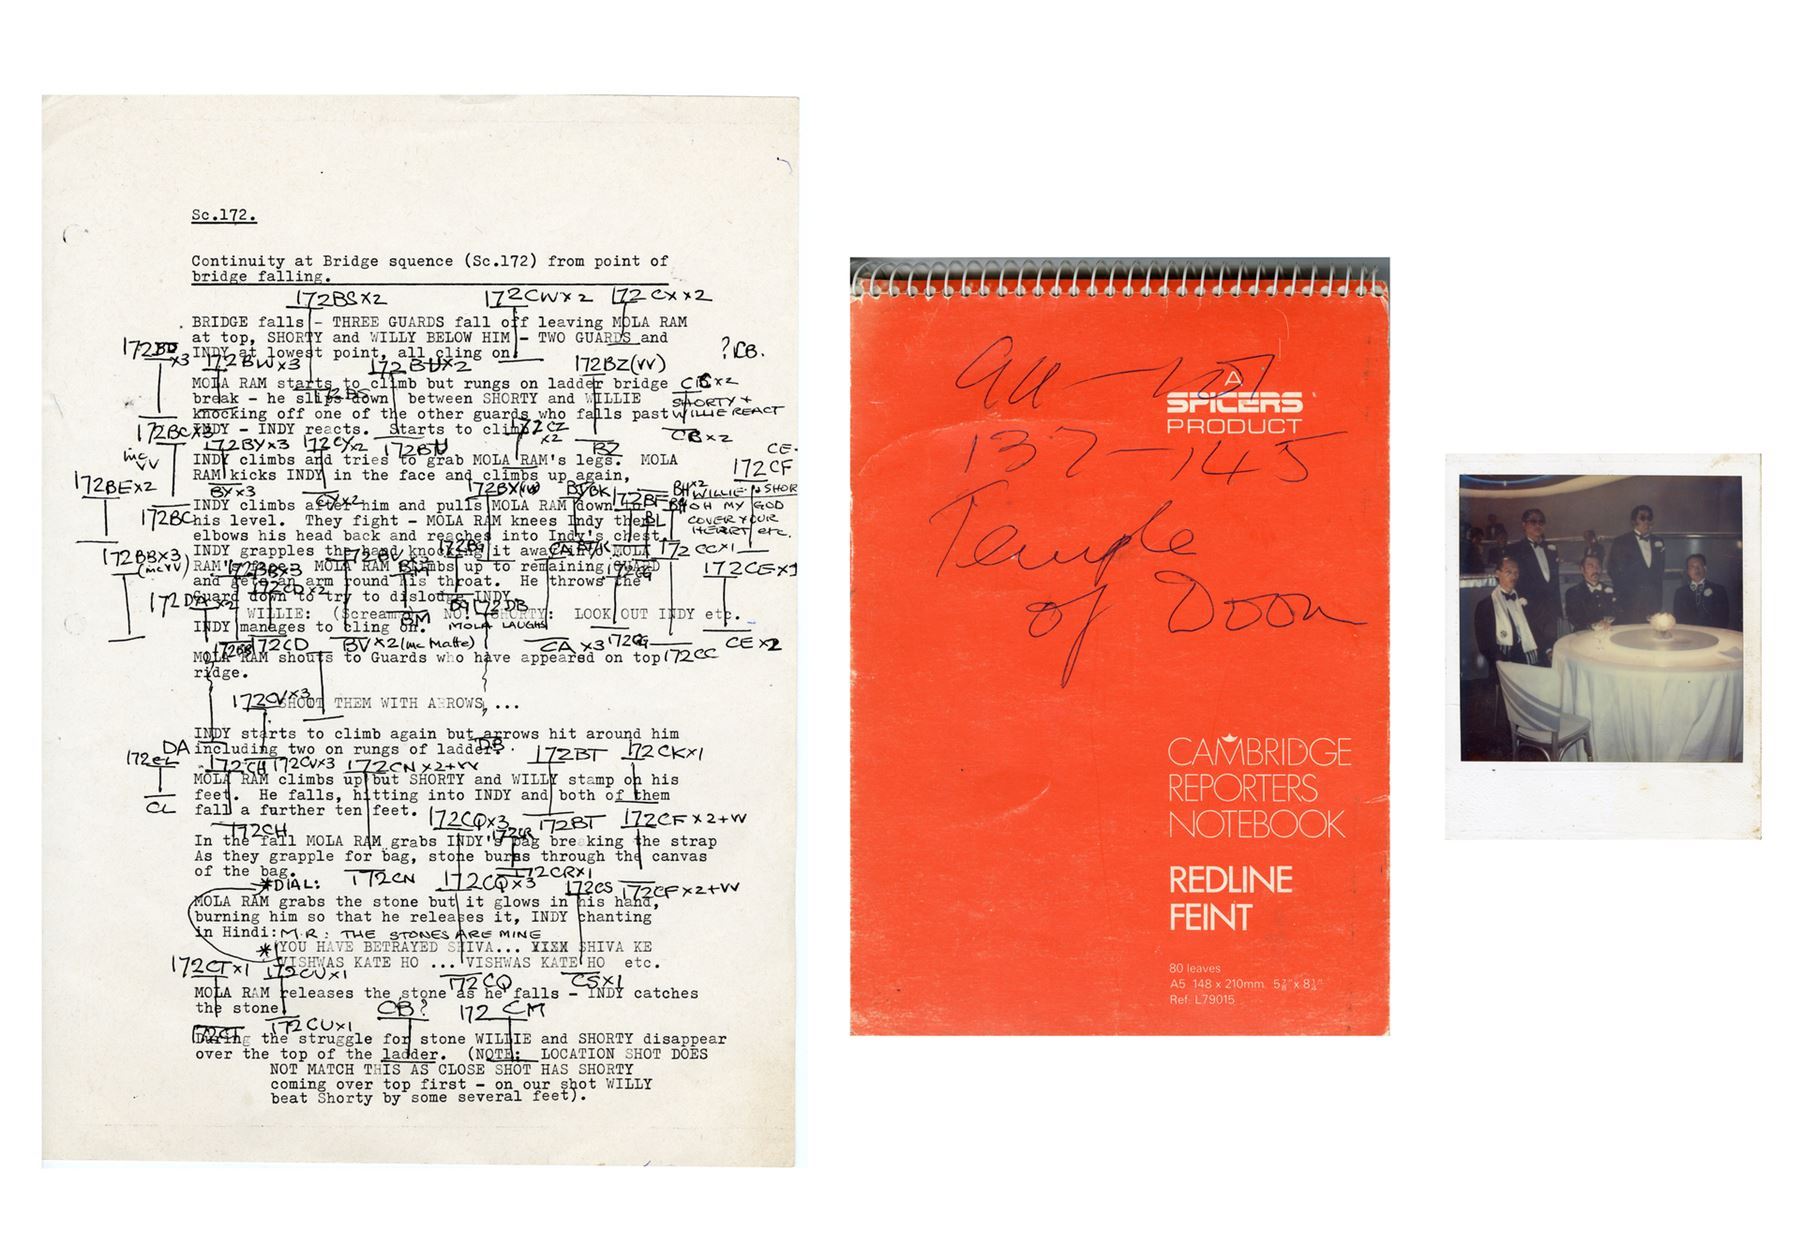 Sc.172.
Continuity at Bridge squence (Sc.172) from point of
bridge falling.
172BS x2 172CW x2 172 CX x2
BRIDGE falls - THREE GUARDS fall off leaving MOLA RAM
at top, SHORTY and WILLY BELOW HIM - TWO GUARDS and
INDY at lowest point, all cling on
?CB.
172BD x3 172BW x3 172BU x2 172BZ(VV)
MOLA RAM starts to climb but rungs on ladder bridge
break - he slips down between SHORTY and WILLIE
knocking off one of the other guards who falls past
INDY - INDY reacts. Starts to climb
172BS
SHORTY +
WILLIE REACT
CB x2
172CZ
x2
172BC x3
172BY x3 172CY x2 172BU BZ
INDY climbs and tries to grab MOLA RAM's legs. MOLA
RAM kicks INDY in the face and climbs up again,
CE-
172CF
172BE x2
BY x3 CY x2
INDY climbs after him and pulls MOLA RAM down to
his level. They fight - MOLA RAM knees Indy then
elbows his head back and reaches into Indy's chest.
INDY grapples the hand knocking it away into MOLA
RAM's face. MOLA RAM climbs up to remaining GUARD
and gets an arm round his throat. He throws the
Guard down to try to dislodge INDY.
WILLIE + SHOR
OH MY GOD
COVER YOUR
HEART etc.
172BC
172BB x3
172 CC x1
172CE x1
172CD x2
172DA x2
BM
172DB
WILLIE: (Screams) NO! SHORTY: LOOK OUT INDY etc.
INDY manages to cling on.
MOLA LAUGHS
172CD BV x2 (inc Matte) CA x3 172CG 172CC CE x2
MOLA RAM shouts to Guards who have appeared on top
ridge.
172CV x3
SHOOT THEM WITH ARROWS, ...
INDY starts to climb again but arrows hit around him
including two on rungs of ladder.
DA
DB.
172BT 172CK x1
172CL
172CH 172CV x3 172CN x2+VV
MOLA RAM climbs up but SHORTY and WILLY stamp on his
feet. He falls, hitting into INDY and both of them
fall a further ten feet.
CL
172CH 172CQ x3 172CR 172BT 172CF x2+VV
In the fall MOLA RAM grabs INDY's bag breaking the strap
As they grapple for bag, stone burns through the canvas
of the bag.
172CN 172CQ x3 172CR x1 172CS 172CF x2+VV
*DIAL:
MOLA RAM grabs the stone but it glows in his hand,
burning him so that he releases it, INDY chanting
in Hindi: M.R: THE STONES ARE MINE
* YOU HAVE BETRAYED SHIVA... XXXX SHIVA KE
VISHWAS KATE HO ... VISHWAS KATE HO etc.
172CT x1 172CU x1 172CQ CS x1
MOLA RAM releases the stone as he falls - INDY catches
the stone
172CT 172CU x1 CB? 172 CM
During the struggle for stone WILLIE and SHORTY disappear
over the top of the ladder. (NOTE: LOCATION SHOT DOES
NOT MATCH THIS AS CLOSE SHOT HAS SHORTY
coming over top first - on our shot WILLY
beat Shorty by some several feet).
A
SPICERS
PRODUCT
137-145
Temple
of Doom
CAMBRIDGE
REPORTERS
NOTEBOOK
REDLINE
FEINT
80 leaves
A5 148 x 210mm 5⅞" x 8¼"
Ref. L79015